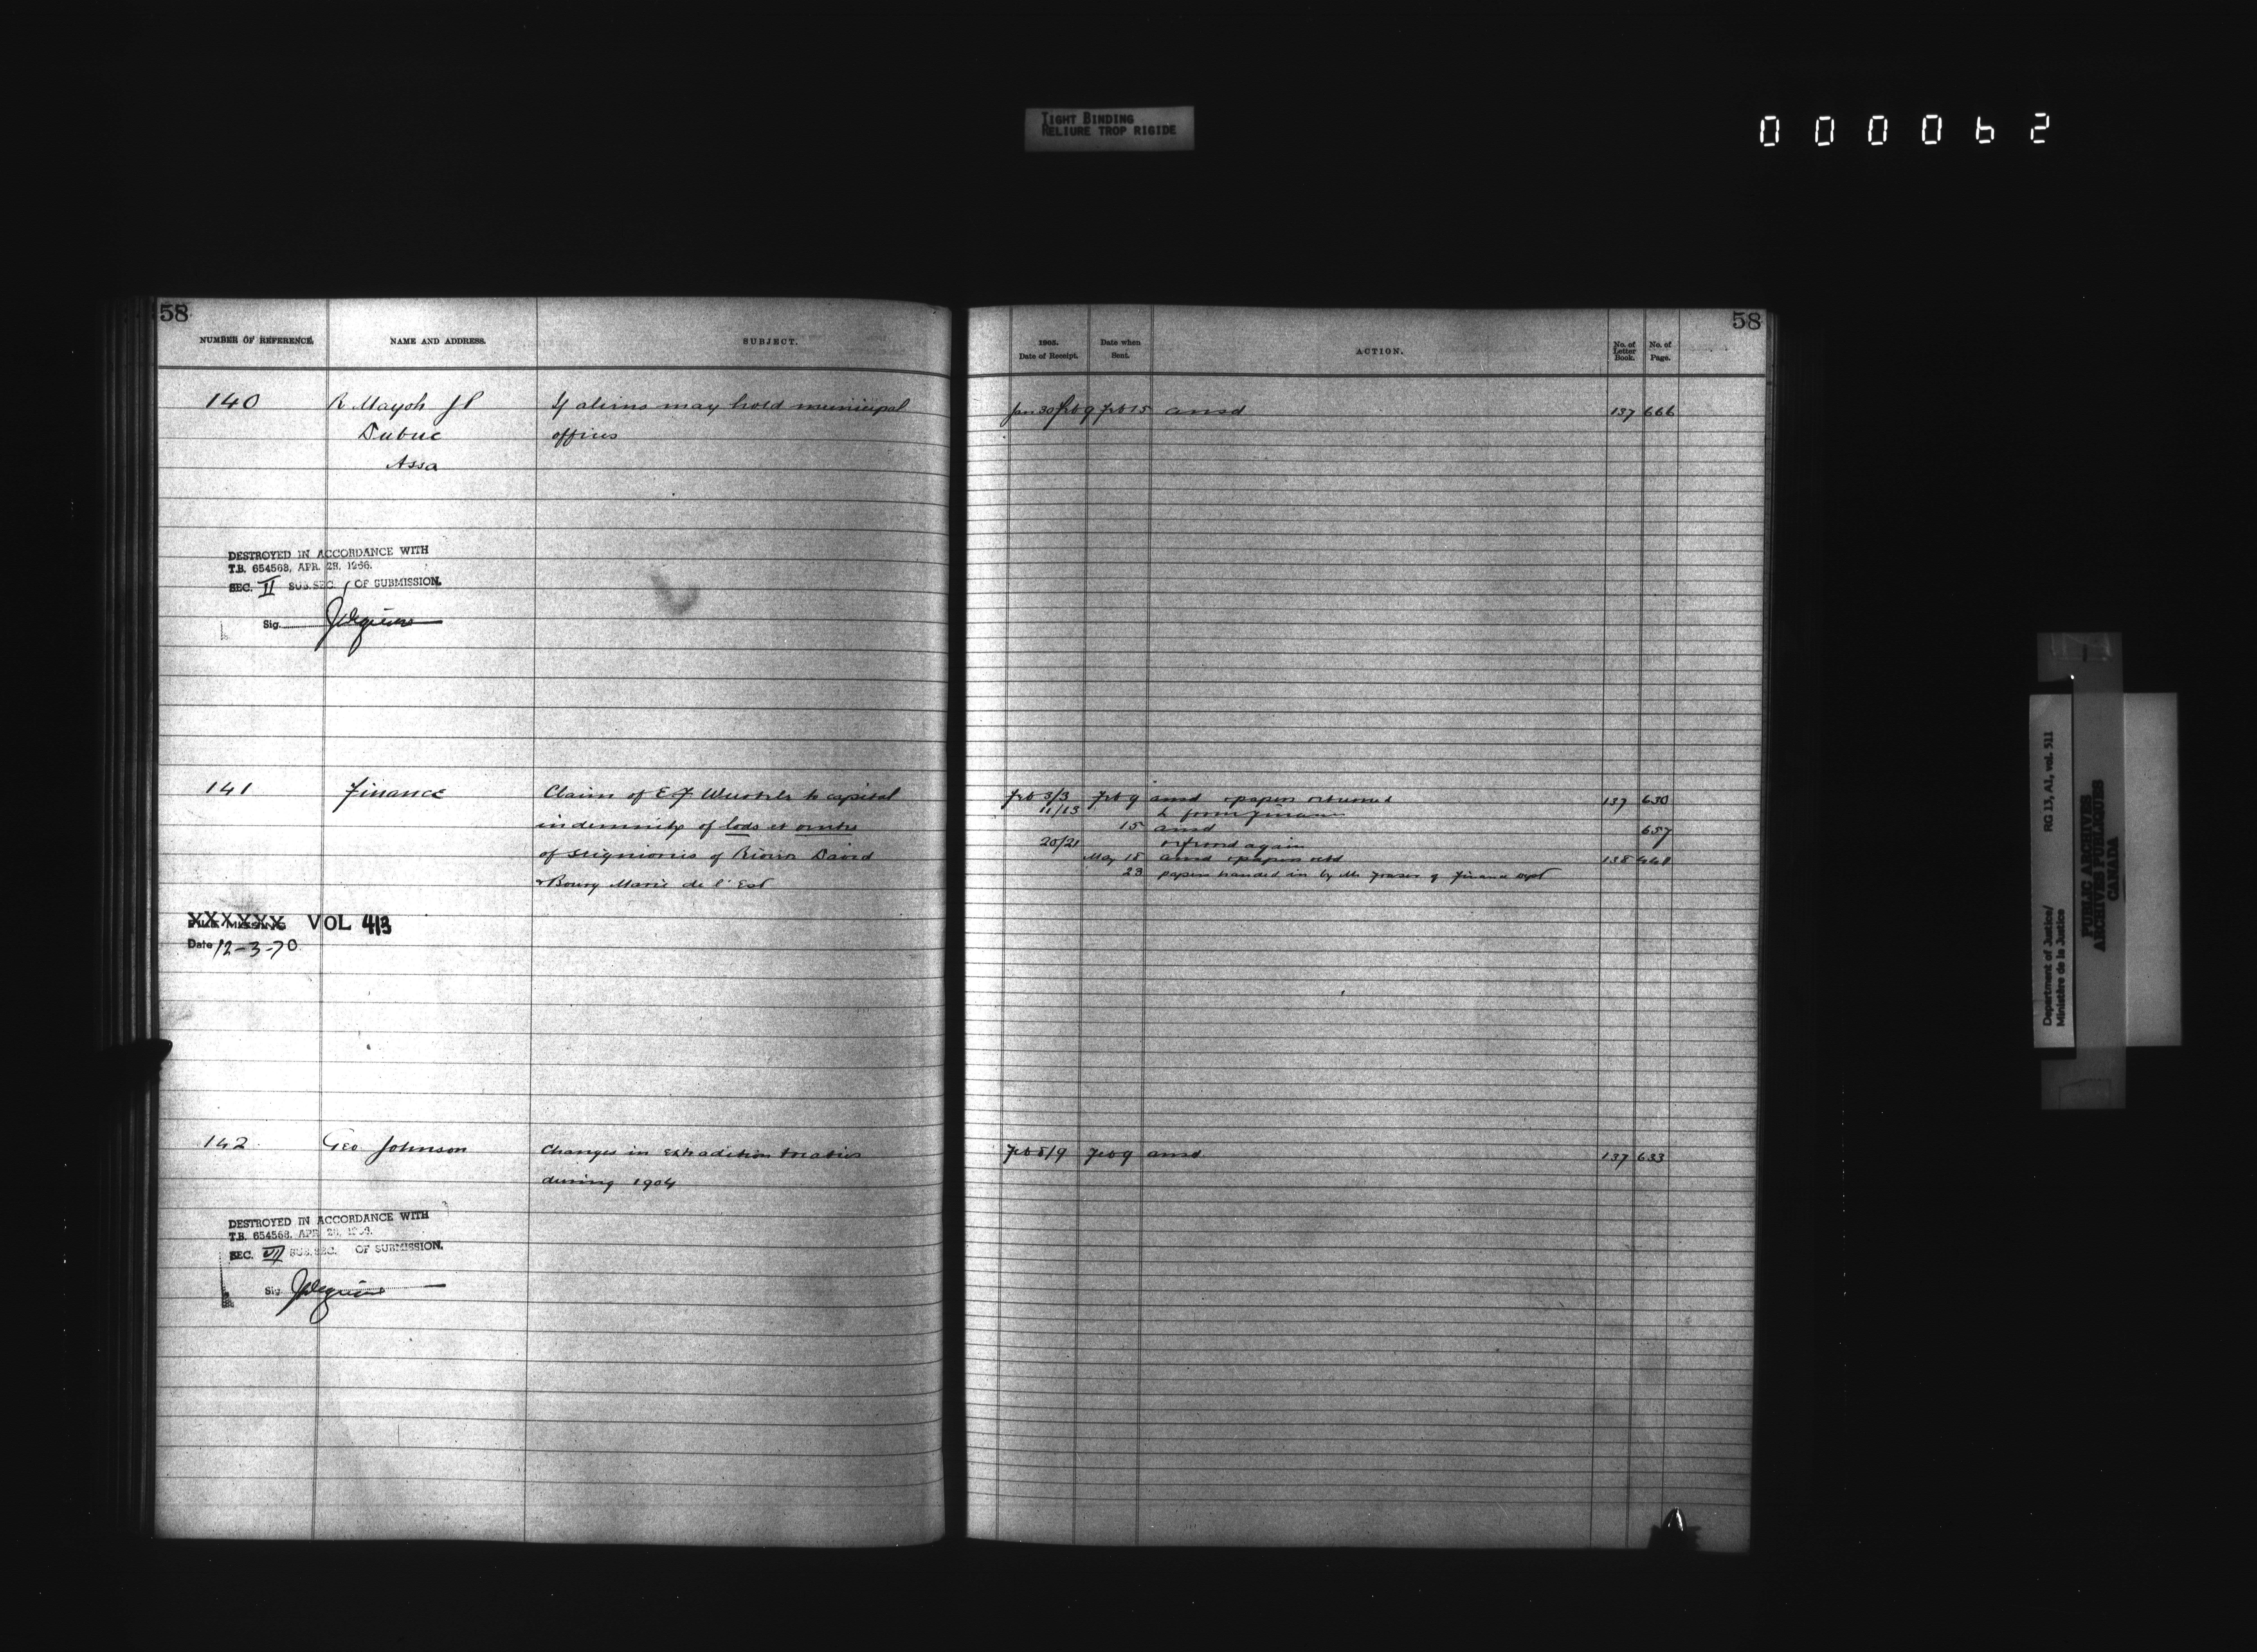 TIGHT BINDING
RELIURE TROP RIGIDE
000062
58
NUMBER OF REFERENCE.
NAME AND ADDRESS.
SUBJECT.
140
R Mayoh JP
If aliens may hold municipal
Dubuc
offices
Assa
DESTROYED IN ACCORDANCE WITH
T.B. 654568, APR. 28, 1966.
SEC. II SUB.SEC. 1 OF SUBMISSION.
Sig.
141
Finance
Claim of E. J. Wurtele to capital
indemnity of lods et ventes
of seigniories of Rivier David
& Bourg Marie de l'Est
FILE MISSING VOL 413
Date 12-3-70
142
Geo Johnson
Changes in extradition treaties
during 1904
DESTROYED IN ACCORDANCE WITH
T.B. 654568, APR. 28, 1966.
SEC. VII SUB.SEC. OF SUBMISSION.
Sig.
58
1905.
Date of Receipt.
Date when
Sent.
ACTION.
No. of
Letter
Book.
No. of
Page.
Jan 30/Feb 9 Feb 15 ansd 137 666
Feb 3/3 Feb 9 ansd & papers returned 137 630
11/13 L from Finance
15 ansd 657
20/21 referred again
May 18 ansd & papers retd 138
23 papers handed in by Mr Fraser of Finance Dept
Feb 8/9 Feb 9 ansd 137 633
Department of Justice/
Ministère de la Justice
RG 13, A1, vol. 511
PUBLIC ARCHIVES
ARCHIVES PUBLIQUES
CANADA